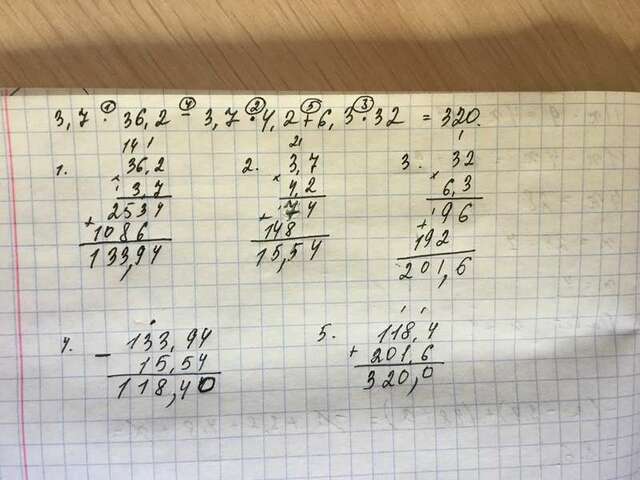 3,7 · 36,2 - 3,7 · 4,2 + 6,3 · 32 = 320.
① ④ ② ⑤ ③
1.
14 1
36,2
× 3,7
2534
+ 1086
133,94
2.
21
3,7
× 4,2
74
+ 148
15,54
3.
1
32
× 6,3
96
+ 192
201,6
4.
133,94
- 15,54
118,40
5.
1 1
118,4
+ 201,6
320,0